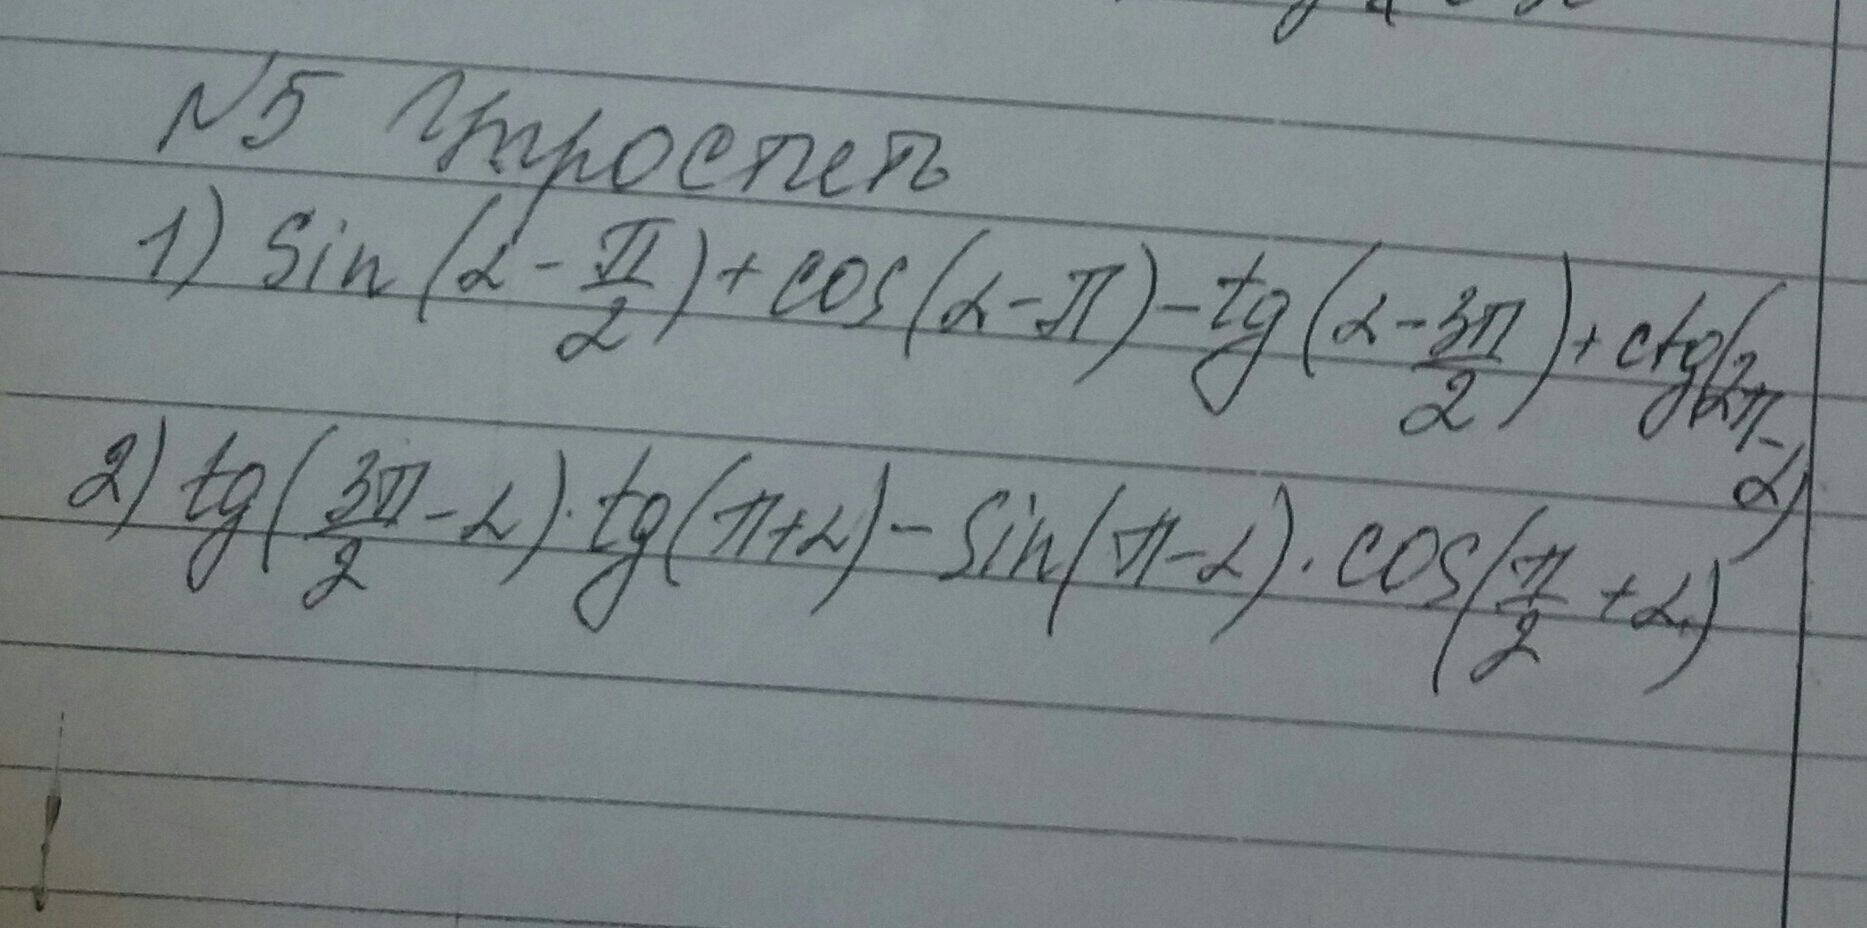 N5 Упростить
1) Sin(α - π/2) + cos(α - π) - tg(α - 3π/2) + ctg(2π - α)
2) tg(3π/2 - α) · tg(π + α) - Sin(π - α) · cos(π/2 + α)